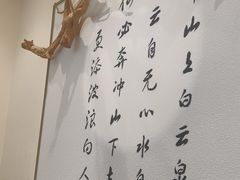 山上白云泉
云自无心水自
必奔冲山下
更添波浪向人